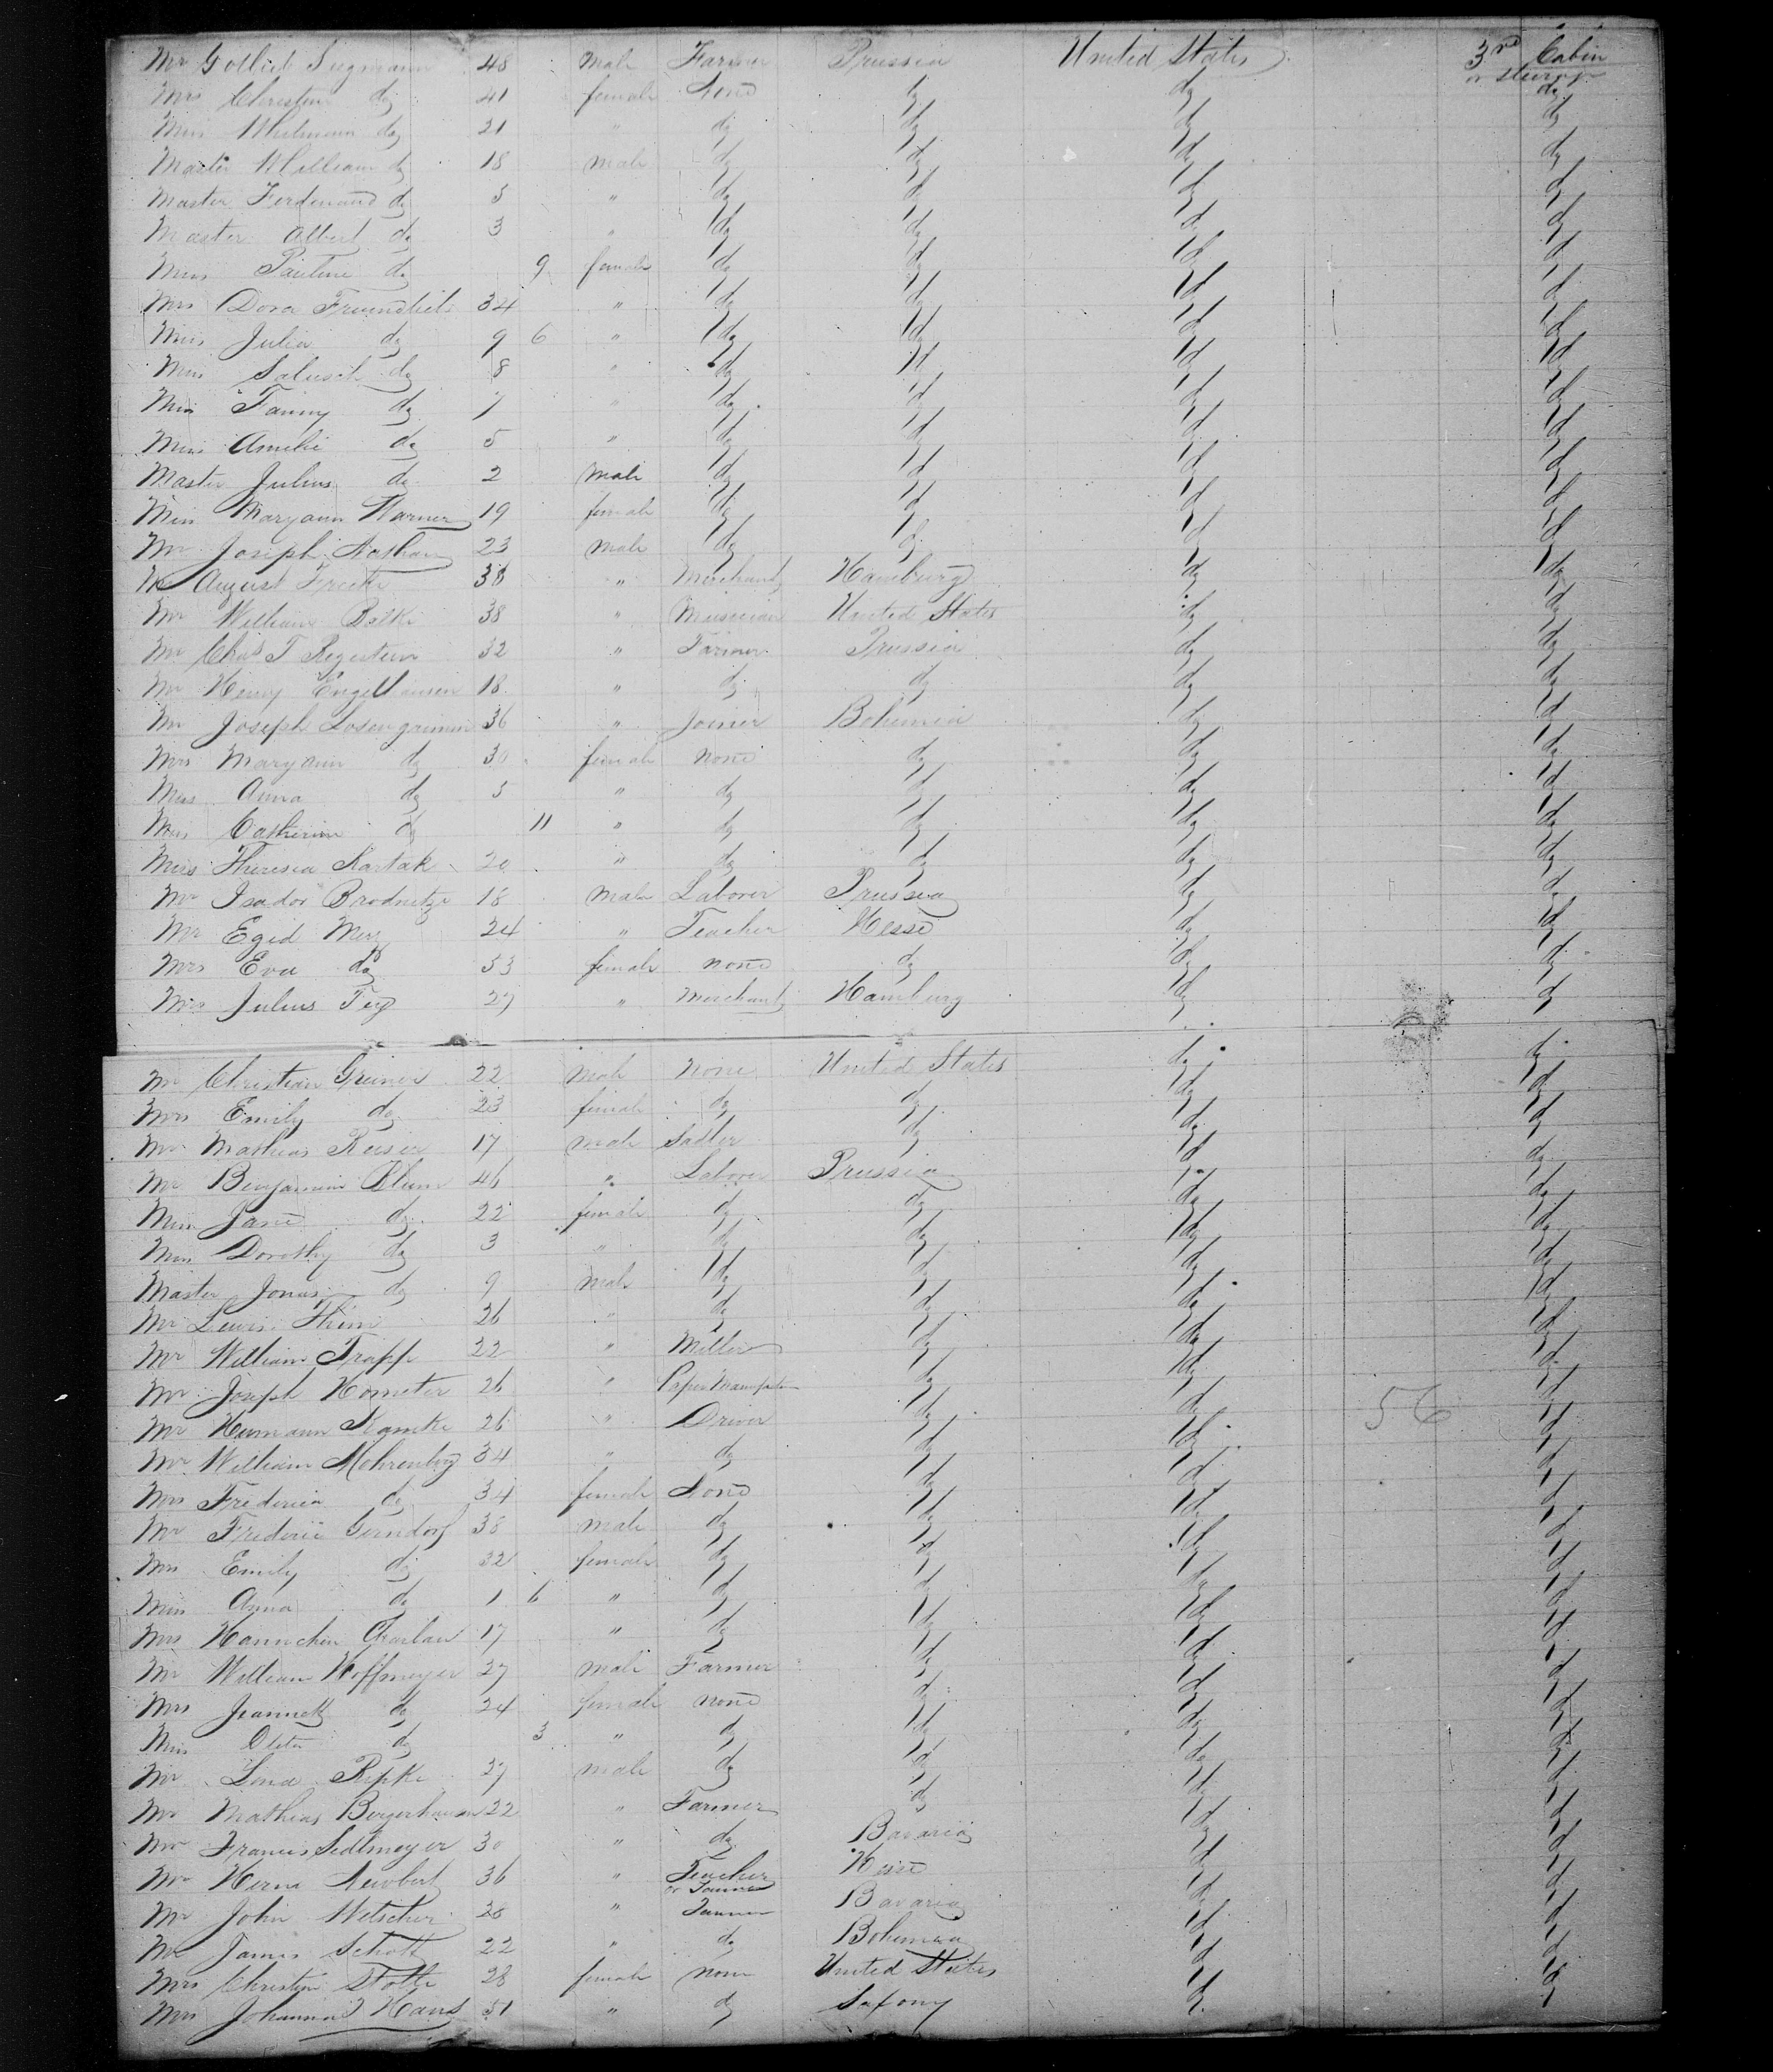 Mr Gottlieb 48 male Farmer Prussia United States 3rd Cabin or steerage
Mrs Christine do 41 female None do do do
Miss Whilmina do 21 " do do do do
Master William do 18 male do do do do
Master Ferdinand do 5 " do do do do
Master Albert do 3 " do do do do
Miss Pauline do 9 female do do do do
Mrs Dora 34 " do do do do
Miss Julia do 9 6 " do do do do
Miss do 8 " do do do do
Miss Fanny do 7 " do do do do
Miss do 5 " do do do do
Master Julius do 2 male do do do do
Miss Maryann Warner 19 female do do do do
Mr Joseph Nathan 23 male do do do do
Mr August 38 " Merchant Hamburg do do
Mr William 38 " Musician United States do do
Mr Chas T Regestein 32 " Farmer Prussia do do
Mr Henry Engelhausen 18 " do do do do
Mr Joseph 36 " Joiner Bohemia do do
Mrs Maryann do 30 female none do do do
Miss Anna do 5 " do do do do
Miss Catherine do 11 " do do do do
Miss Theresia Kartak 20 " do do do do
Mr Isador 18 male Laborer Prussia do do
Mr Egid Merz 24 " Teacher Hesse do do
Mrs Eva do 53 female none do do do
Mrs Julius 27 " Merchant Hamburg do do
Mr Christian Greiner 22 male None United States do do
Mrs Emily do 23 female do do do do
Mr Mathias Reiser 17 male Sadler do do do
Mr Benjamin Blum 46 " Laborer Prussia do do
Miss Jane do 22 female do do do do
Miss Dorothy do 3 " do do do do
Master Jonas do 9 male do do do do
Mr Lewis 26 " do do do do
Mr William Trapp 22 " Miller do do do
Mr Joseph Hometer 26 " do do do
Mr Hermann 26 " Driver do do 56 do
Mr William Mohrenberg 34 " do do do do
Mrs Frederica do 34 female None do do do
Mr Frederic Gerndorf 38 male do do do do
Mrs Emily do 32 female do do do do
Miss Anna do 1 6 " do do do do
Mrs Hannchen 17 " do do do do
Mr William Hoffmeyer 27 male Farmer do do do
Mrs Jeannett do 24 female none do do do
Miss do 3 " do do do do
Mr Ripke 27 male do do do do
Mr Mathias Bergerhausen 22 " Farmer do do do
Mr Francis Sedlmeyer 30 " do Bavaria do do
Mr Newbert 36 " Teacher Hesse do do
or Tanner
Mr John " Tanner Bavaria do do
Mr James Schott 22 " do Bohemia do do
Mrs Christine Stolte 28 female none United States do do
Mrs Johanna Hans 51 " do Saxony do do